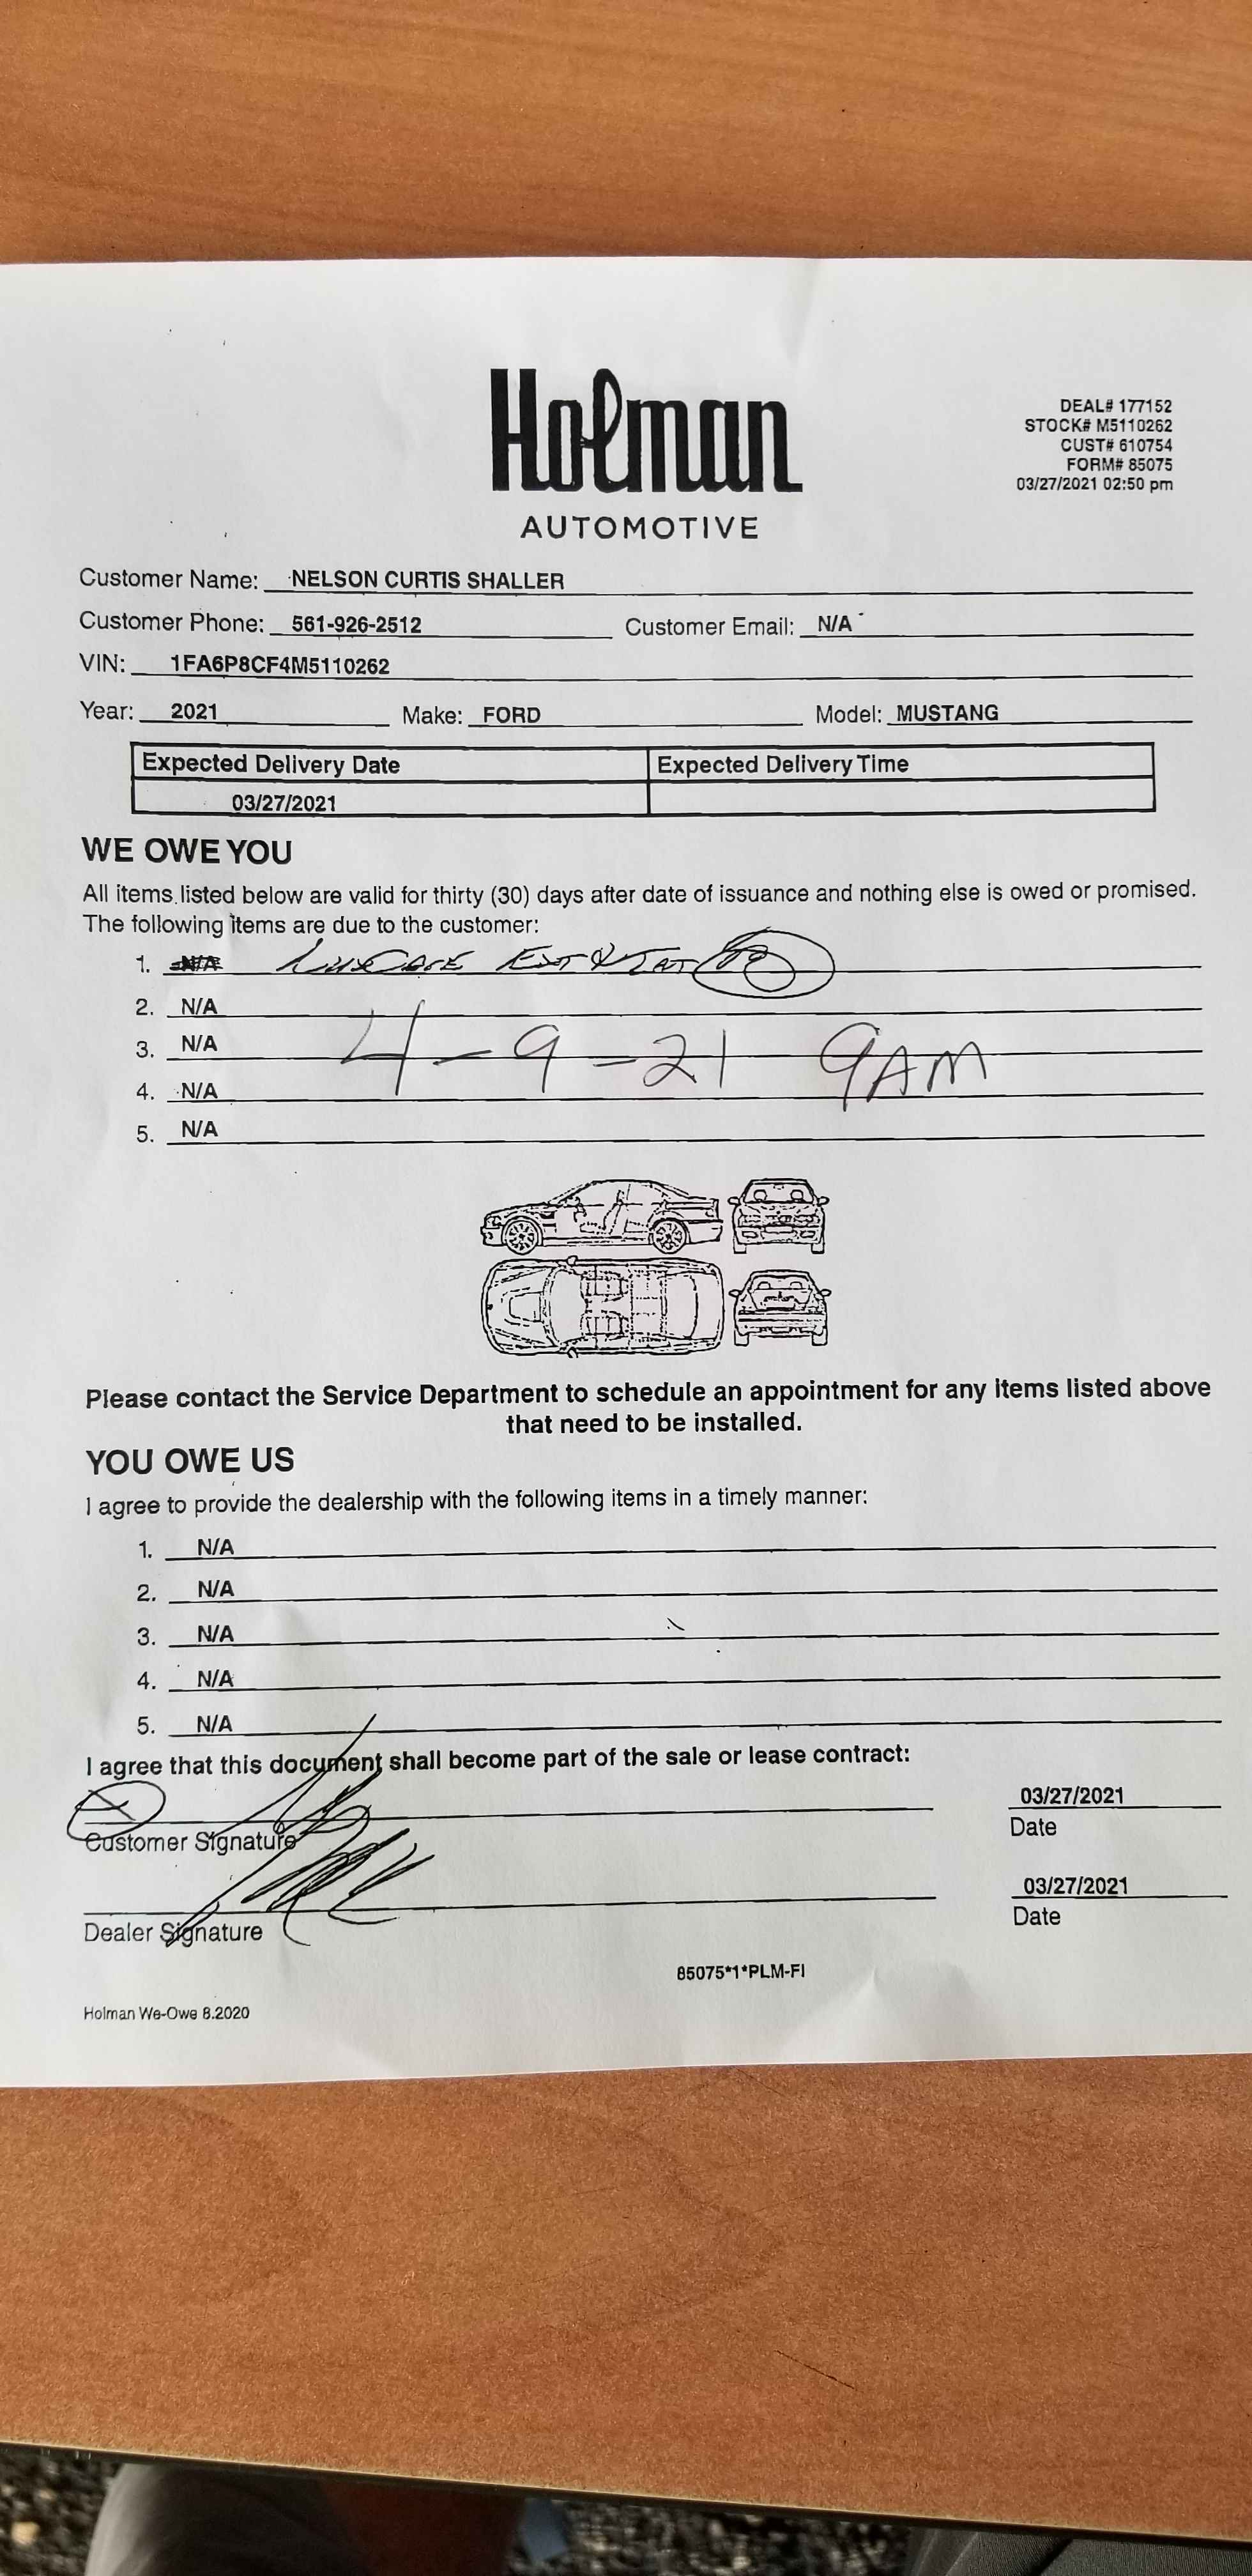 Holman
AUTOMOTIVE
DEAL# 177152
STOCK# M5110262
CUST# 610754
FORM# 85075
03/27/2021 02:50 pm
Customer Name: NELSON CURTIS SHALLER
Customer Phone: 561-926-2512 Customer Email: N/A
VIN: 1FA6P8CF4M5110262
Year: 2021 Make: FORD Model: MUSTANG
Expected Delivery Date Expected Delivery Time
03/27/2021
WE OWE YOU
All items listed below are valid for thirty (30) days after date of issuance and nothing else is owed or promised.
The following items are due to the customer:
1. N/A LUXCARE EXT
2. N/A
3. N/A 4-9-21 9AM
4. N/A
5. N/A
Please contact the Service Department to schedule an appointment for any items listed above
that need to be installed.
YOU OWE US
I agree to provide the dealership with the following items in a timely manner:
1. N/A
2. N/A
3. N/A
4. N/A
5. N/A
I agree that this document shall become part of the sale or lease contract:
03/27/2021
Customer Signature Date
03/27/2021
Dealer Signature Date
85075*1*PLM-FI
Holman We-Owe 8.2020